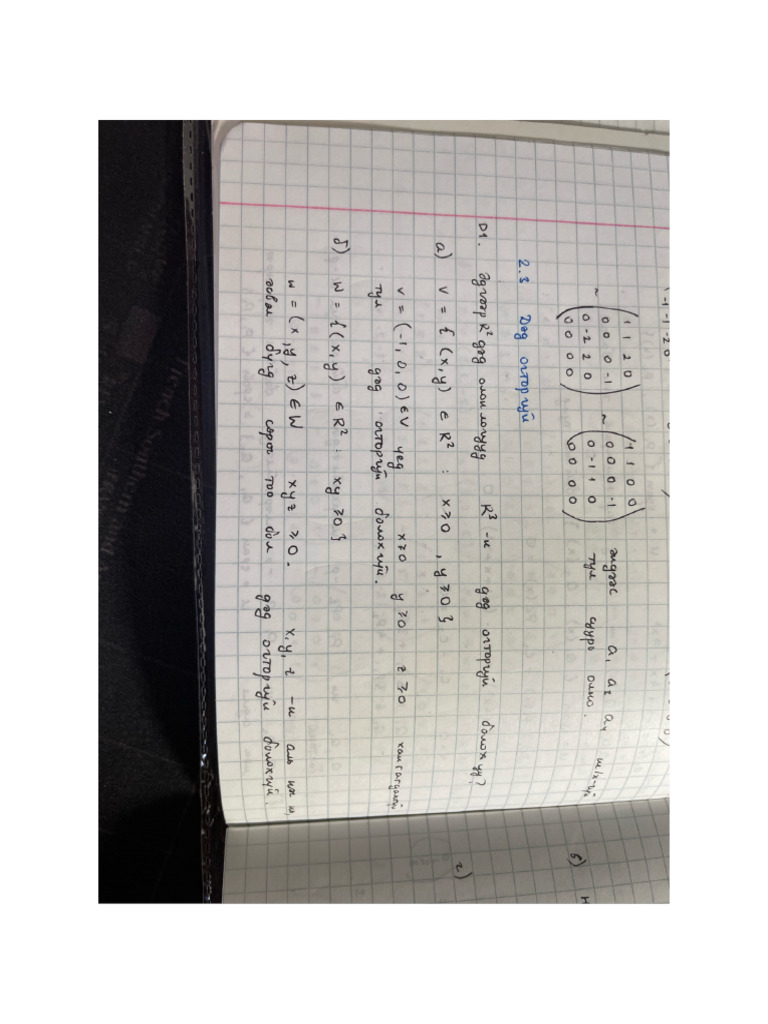 (-1 -1 -2 0
~ (1 1 2 0
0 0 0 -1
0 -2 2 0
0 0 0 0) ~ (1 1 0 0
0 0 0 -1
0 -1 1 0
0 0 0 0) эндээс a₁ a₂ a₄
тул суурь олно.
2.3 Дэд огторгуй
D1. Эдгээр R² дэд олонлогууд R³ -н дэд огторгуй болох уу?
а) V = { (x,y) ∈ R² : x≥0 , y≥0 }
v = (-1, 0, 0) ∈ V үед x≥0 y≥0 z≥0
тул дэд огторгуй болохгүй.
б) W = { (x,y) ∈ R² : xy ≥0 }
w = (x, y, z) ∈ W xyz ≥0. x, y, z -н аль нэг нь
эсвэл бүгд сөрөг тоо бол дэд огторгуй болохгүй.
г)